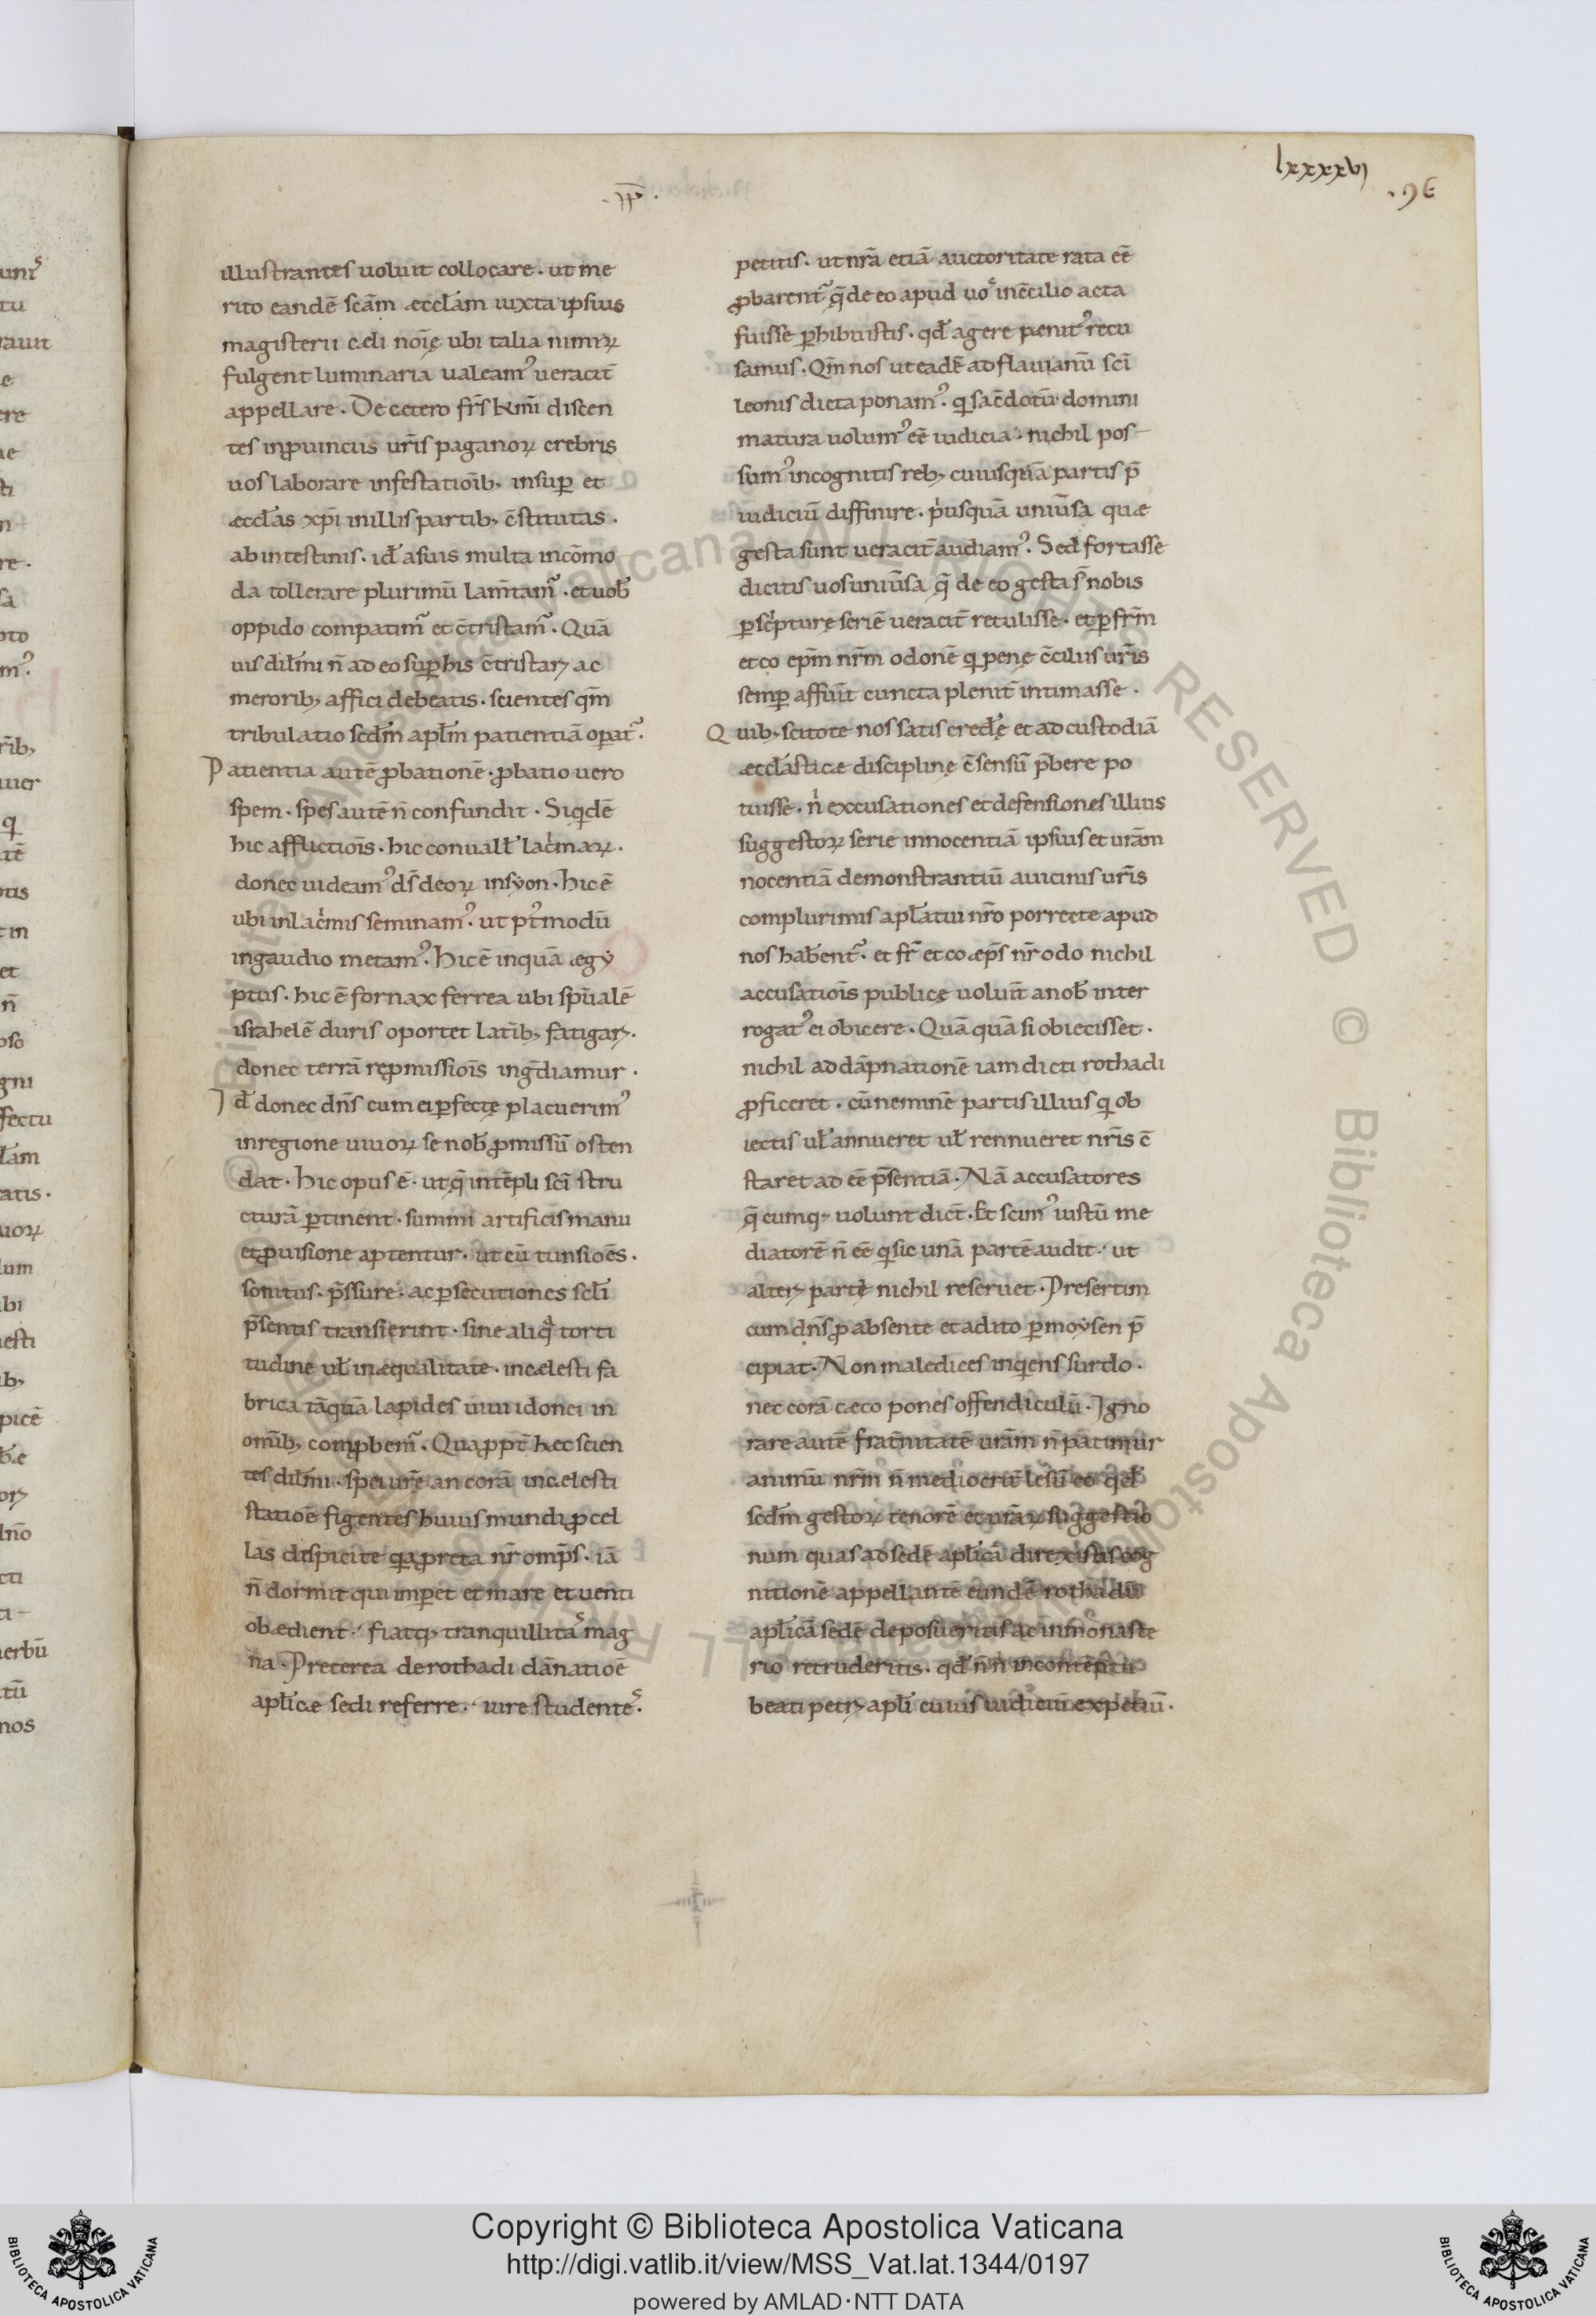 lxxxxvj
.96
.pp.
illustrantes uoluit collocare. ut me
rito eandē scām æccl̄am iuxta ipsius
magisterii cæli noīe ubi talia nimiꝝ
fulgent luminaria ualeamꝰ ueracit̄
appellare. De cetero fr̄s km̄i discen
tes in ꝓuinciis ur̄is paganoꝝ crebris
uos laborare infestatioīb; insuꝑ et
æccl̄as xp̄i in illis partib; c̄stitutas.
ab intestinis. id̄ a suis multa incōmo
da tollerare plurimū lam̄tam̄. et uob̄
oppido compatim̄ et c̄tristam̄. Quā
uis dil̄mi n̄ ad eo suꝑ his c̄tristari ac
merorib; affici debeatis. scientes qm̄
tribulatio scd̄m apl̄m patientiā oꝑat̄.
Patientia autē ꝓbationē. ꝓbatio uero
spem. spes autē n̄ confundit. Siqdē
hic afflictiōis. hic conuall̄ lac̍maꝝ.
donec uideamꝰ ds̄ deoꝝ in syon. Hic ē
ubi in lac̍mis seminamꝰ. ut pt̄modū
in gaudio metamꝰ. Hic ē inquā ægy
ptus. hic ē fornax ferrea ubi sp̄ualē
israhelē duris oportet lat̄ib; fatigari.
donec terrā repmissiōis inḡdiamur.
Id̄ donec dn̄s cum ei ꝑfectę placuerimꝰ
in regione uiuoꝝ se nob̄ ꝓmissū osten
dat. Hic opus ē. ut q̄ in tēpli sc̄i stru
cturā ꝑtinent. summi artificis manu
et ꝓuisione aptentur. ut cū tunsiōes.
sonitus. p̄ssure. ac ꝑsecutiones scl̄i
p̄sentis transierint. sine aliq̄ torti
tudine ul̄ inæqualitate. in cælesti fa
brica tāquā lapides uiui idonei in
omīb; comꝓbem̄. Quaꝓpt̄ hæc scien
tes dil̄mi. spei ur̄e ancorā in cælesti
statiōe figentes huius mundi ꝓcel
las dispicite qa ꝓreta nr̄ omp̄s. iā
n̄ dormit qui imꝑet et mare et uenti
obædient. fiatq; tranquillitas mag
na. Preterea de rothadi dānatiōe
apl̄icæ sedi referre. iure studentes.
petitis. ut nr̄a etiā auctoritate rata eē
ꝓbarent̄ q̄ de eo apud uos in c̄cilio acta
fuisse ꝑhibuistis. qd̄ agere penitꝰ recu
samus. Qm̄ nos ut eadē ad flauianū sc̄i
leonis dicta ponamꝰ. q sac̄dotū domini
matura uolumꝰ eē iudicia. nichil pos-
sumꝰ incognitis reb; cuiusquā partis p̄
iudiciū diffinire. p̍usquā uniu̅sa quæ
gesta sunt ueracit̄ audiamꝰ. Sed fortasse
dicitis uos uniu̅sa q̄ de eo gesta s̄ nobis
ꝑ sc̍pturę seriē ueracit̄ retulisse. et ꝑ fr̄m
et co ep̄m nr̄m odonē q penę c̄ciliis ur̄is
semꝑ affuit̄ cuncta plenit̄ intimasse.
Quib; scitote nos satis cred̄e et ad custodiā
æccl̄asticæ disciplinę c̄sensū p̄bere po
tuisse. n̍ exccusationes et defensiones illius
suggestoꝝ serie innocentiā ipsius et ur̄am
nocentiā demonstrantiū a uicinis ur̄is
complurimis apl̄atui nr̄o porrecte apud
nos hab̄ent̄. et fr̄ et co æp̄s nr̄ odo nichil
accusatiōis publicę uoluit̄ a nob̄ inter
rogatꝰ ei obicere. Quā quā si obiecisset.
nichil ad dāpnationē iam dicti rothadi
ꝓficeret. cū neminē partis illius q ob
iectis ul̄ annueret ul̄ rennueret nr̄is c̄
staret ad eē p̄sentiā. Nā accusatores
q̄cumq; uolunt dic̄t. Et scimꝰ iustū me
diatorē n̄ eē q sic unā partē audit. ut
alteri parte nichil reseruet. Presertim
cum dn̄s ꝓ absente et adito ꝑ moysen p̄
cipiat. Non maledices inqens surdo.
nec corā cæco pones offendiculū. Igno
rare autē frat̄nitatē ur̄am n̄ patimur
animū nr̄m n̄ mediocrit̄ lesū eo qd̄
scd̄m gestoꝝ tenorē et ur̄aꝝ suggestio
num quas ad sedē apl̄icā direxistis cog
nitionē appellantē eundē rothadū
apl̄icā sedē deposueritis ac in monaste
rio retruderitis. qd̄ n̄ n̄ in contēptū
beati petri apl̄i cuius iudiciū expetiu̅.
Copyright © Biblioteca Apostolica Vaticana
http://digi.vatlib.it/view/MSS_Vat.lat.1344/0197
powered by AMLAD·NTT DATA